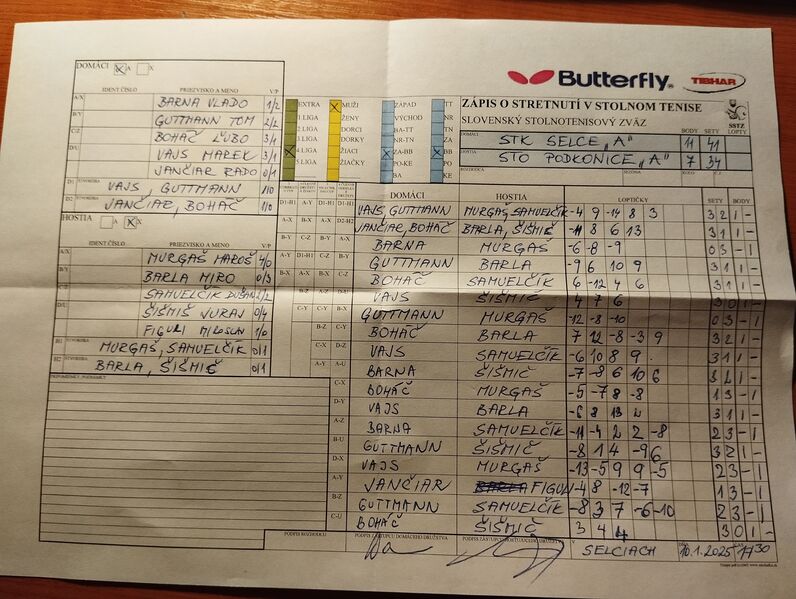 Butterfly TIBHAR
DOMÁCI A X
IDENT. ČÍSLO PRIEZVISKO A MENO V/P
A/X BARNA VLADO 1/2
B/Y GUTTMANN TOM 2/2
C/Z BOHÁČ ĽUBO 3/1
D/U VAJS MAREK 3/1
JANČIAR RADO 0/1
D1 ŠTVORHRA VAJS, GUTTMANN 1/0
D2 ŠTVORHRA JANČIAR, BOHÁČ 1/0
HOSTIA A X
IDENT. ČÍSLO PRIEZVISKO A MENO V/P
A/X MURGAŠ MAROŠ 4/0
B/Y BARLA MIRO 0/3
C/Z SAMUELČÍK DUŠAN 2/2
D/U ŠIŠMIŠ JURAJ 0/4
FIGURI MILOSLAV 1/0
H1 ŠTVORHRA MURGAŠ, SAMUELČÍK 0/1
H2 ŠTVORHRA BARLA, ŠIŠMIČ 0/1
EXTRA MUŽI ZÁPAD TT
1 LIGA ŽENY VÝCHOD NR
2 LIGA DORCI BA-TT ZA
3 LIGA DORKY NR-TN TN
4 LIGA ŽIACI ZA-BB BB
5 LIGA ŽIAČKY PO-KE PO
BA KE
ZÁPIS O STRETNUTÍ V STOLNOM TENISE
SLOVENSKÝ STOLNOTENISOVÝ ZVÄZ SSTZ
DOMÁCI BODY SETY LOPTY
STK SELCE "A" 11 41
HOSTIA
STO PODKONICE "A" 7 34
ROZHODCA SEZÓNA KOLO
DOMÁCI HOSTIA LOPTIČKY SETY BODY
VAJS, GUTTMANN MURGAŠ, SAMUELČÍK -4 9 -14 8 3 3 2 1 -
JANČIAR, BOHÁČ BARLA, ŠIŠMIŠ -11 8 6 13 3 1 1 -
BARNA MURGAŠ -6 -8 -9 0 3 - 1
GUTTMANN BARLA -9 6 10 9 3 1 1 -
BOHÁČ SAMUELČÍK 6 -12 4 6 3 1 1 -
VAJS ŠIŠMIČ 4 7 6 3 0 1 -
GUTTMANN MURGAŠ -12 -8 -10 0 3 - 1
BOHÁČ BARLA 7 12 -8 -3 9 3 2 1 -
VAJS SAMUELČÍK -6 10 8 9 3 1 1 -
BARNA ŠIŠMIČ -7 -8 6 10 6 3 2 1 -
BOHÁČ MURGAŠ -5 -7 8 -8 1 3 - 1
VAJS BARLA -6 8 13 2 3 1 1 -
BARNA SAMUELČÍK -11 -4 2 2 -8 2 3 - 1
GUTTMANN ŠIŠMIČ -8 14 -9 6 3 2 1 -
VAJS MURGAŠ -13 -5 9 9 -5 2 3 - 1
JANČIAR FIGURI -4 8 -12 -7 1 3 - 1
GUTTMANN SAMUELČÍK -8 3 7 -6 -10 2 3 - 1
BOHÁČ ŠIŠMIČ 3 4 4 3 0 1 -
PODPIS ROZHODCU PODPIS ZÁSTUPCU DOMÁCEHO DRUŽSTVA PODPIS ZÁSTUPCU HOSŤUJÚCEHO DRUŽSTVA V SELCIACH DŇA 10.1.2025 ČAS 17 30